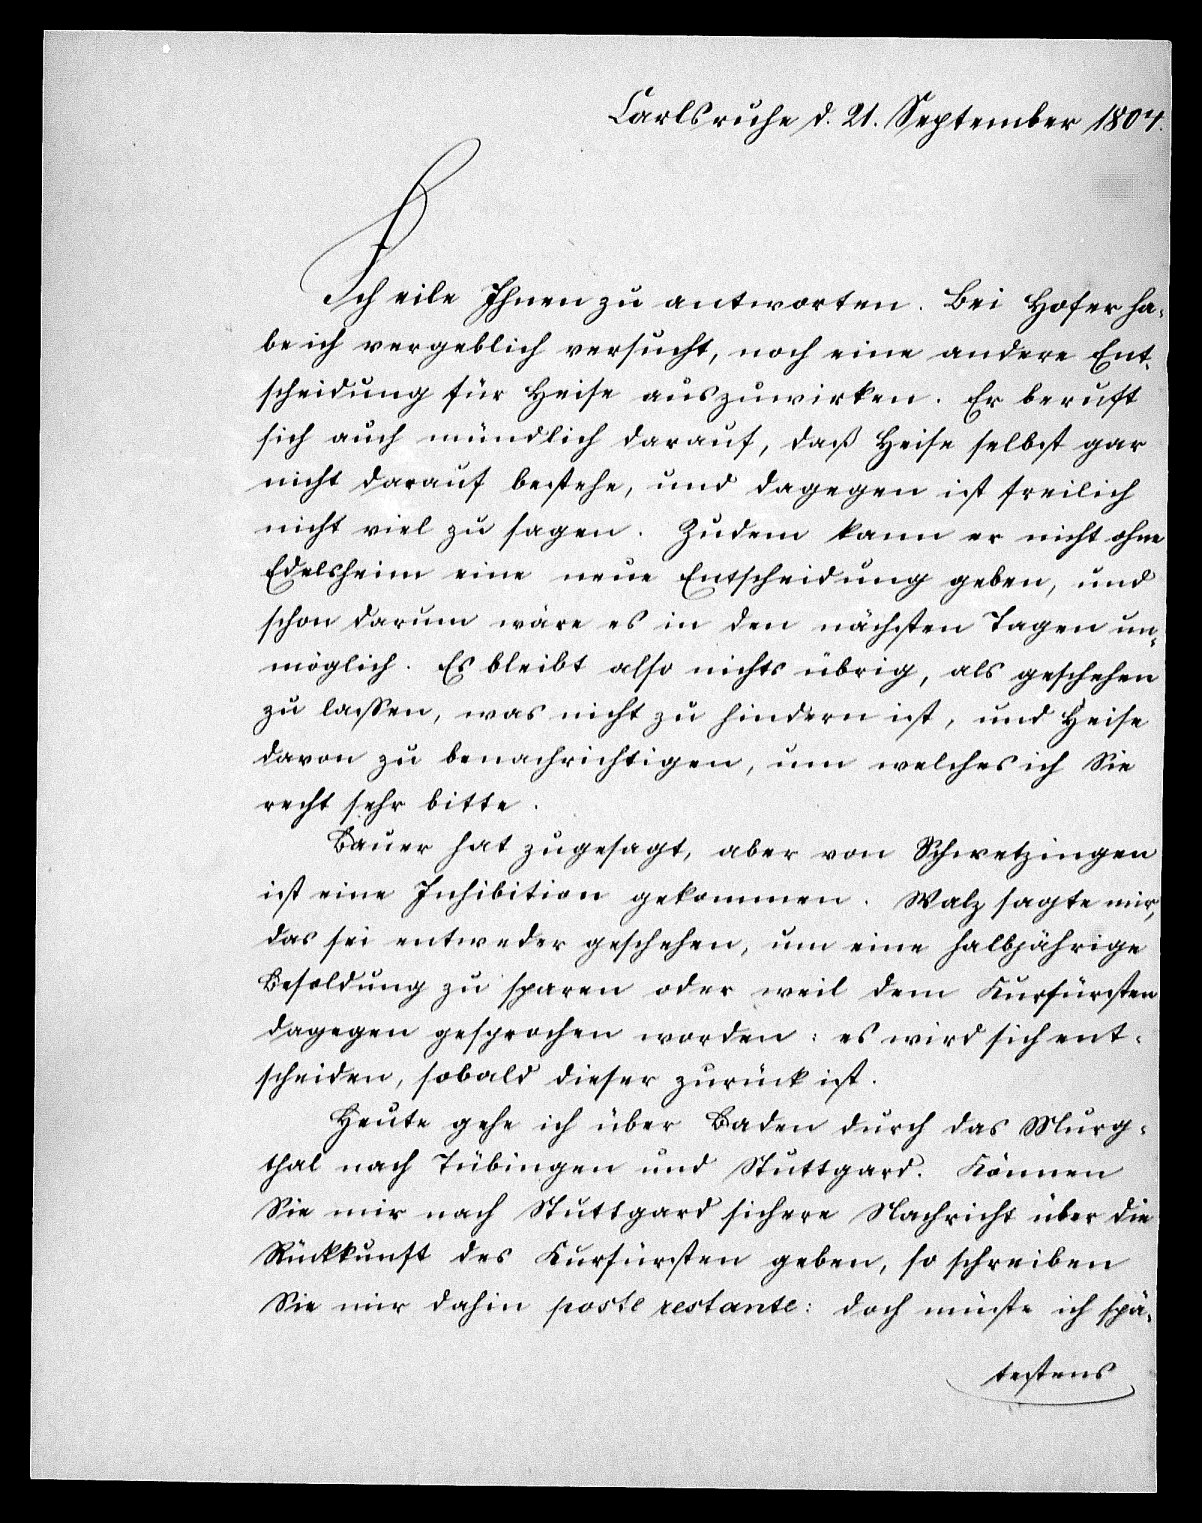 Carlsruhe d. 21. September 1804.
Ich eile Ihnen zu antworten. Bei Hofer ha-
be ich vergeblich versucht, noch eine andere Ent-
scheidung für Heise auszuwirken. Er beruft
sich auch mündlich darauf, daß Heise selbst gar
nicht darauf bestehe, und dagegen ist freilich
nicht viel zu sagen. Zudem kann er nicht ohne
Edelsheim eine neue Entscheidung geben, und
schon darum wäre es in den nächsten Tagen un-
möglich. Es bleibt also nichts übrig, als geschehen
zu lassen, was nicht zu hindern ist, und Heise
davon zu benachrichtigen, um welches ich Sie
recht sehr bitte.
Bauer hat zugesagt, aber von Schwetzingen
ist eine Inhibition gekommen. Walz sagte mir,
das sei entweder geschehen, um eine halbjährige
Besoldung zu sparen oder weil dem Kurfürsten
dagegen gesprochen worden: es wird sich ent-
scheiden, sobald dieser zurück ist.
Heute gehe ich über Baden durch das Murg-
thal nach Tübingen und Stuttgard. Können
Sie mir nach Stuttgard sichere Nachricht über die
Rückkunft des Kurfürsten geben, so schreiben
Sie mir dahin poste restante: doch müste ich spä-
testens